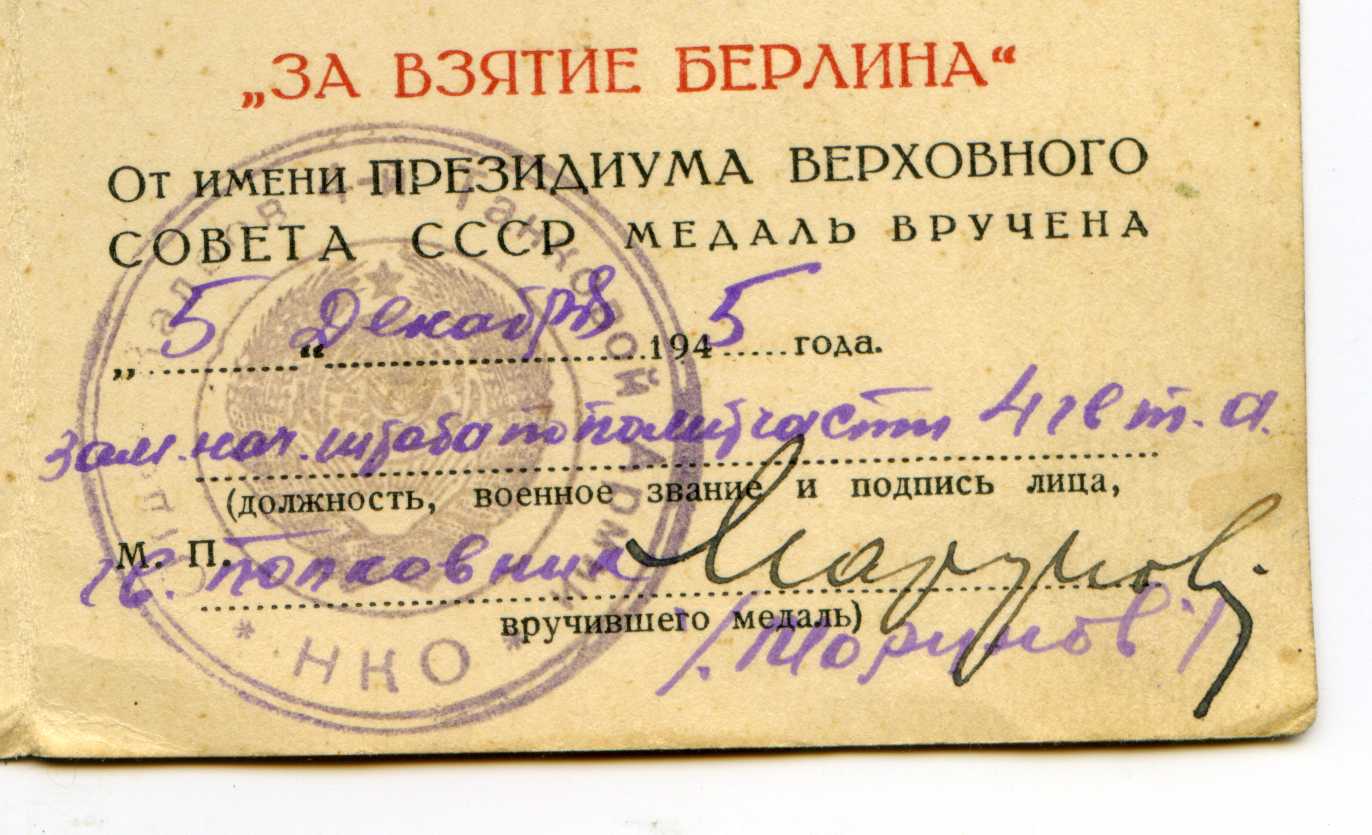 „ЗА ВЗЯТИЕ БЕРЛИНА“
От имени ПРЕЗИДИУМА ВЕРХОВНОГО
СОВЕТА СССР МЕДАЛЬ ВРУЧЕНА
„5“ Декабря 1945 года.
зам. нач. штаба по политчасти 4 гв т. а.
(должность, военное звание и подпись лица,
М. П.
гв. полковник
вручившего медаль)
Танковой Армии
* НКО *